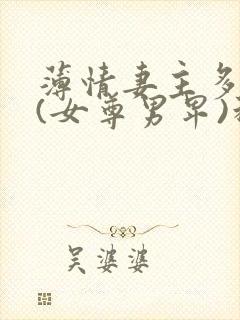 薄情妻主多
(女尊男卑)
吴婆婆